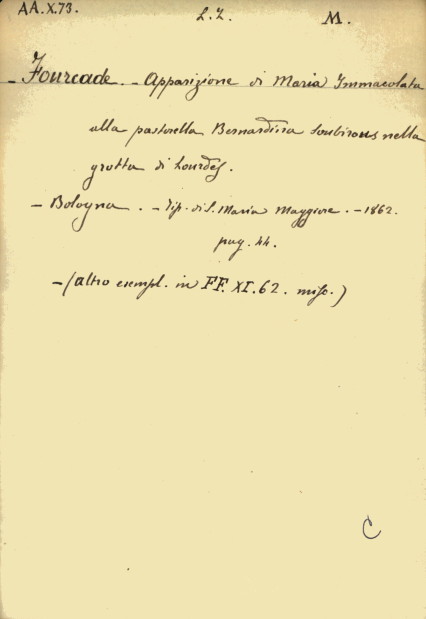 AA.X.73. L.Z. M.
- Fourcade. - Apparizione di Maria Immacolata
alla pastorella Bernardina Soubirous nella
grotta di Lourdes.
- Bologna. - Tip. di S. Maria Maggiore. - 1862.
pag. 44.
- (altro esempl. in FF. XI. 62. misc.)
C